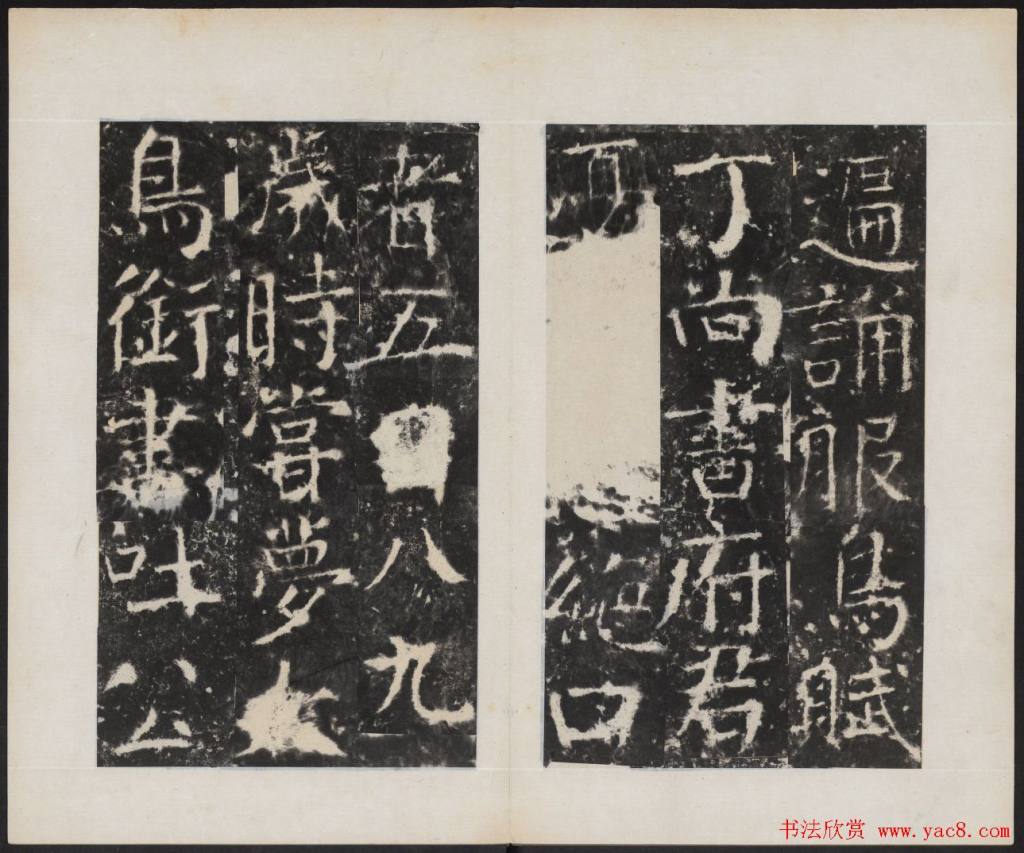 遍誦鵩鳥賦
丁尚書府君
絕口
者五日八九
歲時嘗夢大
鳥銜畫吐公
书法欣赏 www.yac8.com